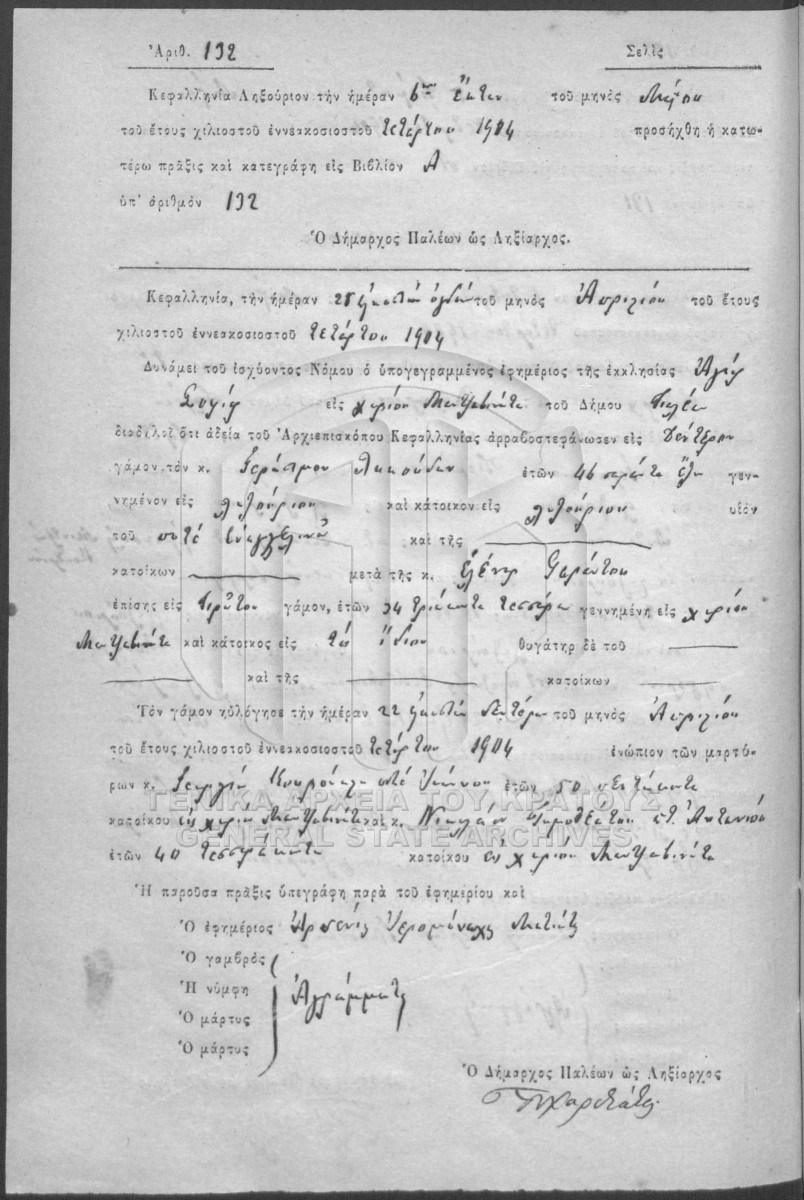 Ἀριθ. 132 Σελὶς
Κεφαλληνία Ληξούριον τὴν ἡμέραν 6ην ἕκτην τοῦ μηνὸς Μαΐου
τοῦ ἔτους χιλιοστοῦ ἐννεακοσιοστοῦ τετάρτου 1904 προσήχθη ἡ κατω-
τέρω πρᾶξις καὶ κατεγράφη εἰς Βιβλίον Α
ὑπ' ἀριθμὸν 132
Ὁ Δήμαρχος Παλέων ὡς Ληξίαρχος.
Κεφαλληνία, τὴν ἡμέραν 28 εἰκοστὴν ὀγδόην τοῦ μηνὸς Ἀπριλίου τοῦ ἔτους
χιλιοστοῦ ἐννεακοσιοστοῦ τετάρτου 1904
Δυνάμει τοῦ ἰσχύοντος Νόμου ὁ ὑπογεγραμμένος ἐφημέριος τῆς ἐκκλησίας Ἁγία
Σοφία εἰς χωρίον Μαντζαβινάτα τοῦ Δήμου Παλέων
διαδηλοῖ ὅτι ἀδείᾳ τοῦ Ἀρχιεπισκόπου Κεφαλληνίας ἀρραβοστεφάνωσεν εἰς δεύτερον
γάμον τὸν κ. Γεράσιμον ἐτῶν 46 σαράντα ἕξη γεν-
νημένον εἰς Ληξούριον καὶ κάτοικον εἰς Ληξούριον υἱὸν
τοῦ ποτὲ Εὐαγγελινοῦ καὶ τῆς
κατοίκων μετὰ τῆς κ. Ἑλένης
ἐπίσης εἰς Πρῶτον γάμον, ἐτῶν 34 τριάκοντα τεσσάρων γεννημένη εἰς χωρίον
Μαντζαβινάτα καὶ κάτοικος εἰς τὸ ἴδιον θυγάτηρ δὲ τοῦ
καὶ τῆς κατοίκων
Τὸν γάμον ηὐλόγησε τὴν ἡμέραν 22 εἰκοστὴν δευτέραν τοῦ μηνὸς Ἀπριλίου
τοῦ ἔτους χιλιοστοῦ ἐννεακοσιοστοῦ τετάρτου 1904 ἐνώπιον τῶν μαρτύ-
ρων κ. ποτὲ ἐτῶν 50 πεντήκοντα
ΓΕΝΙΚΑ ΑΡΧΕΙΑ ΤΟΥ ΚΡΑΤΟΥΣ
κατοίκου εἰς χωρίον Μαντζαβινάτα καὶ κ. Νικολάου
GENERAL STATE ARCHIVES
ἐτῶν 40 τεσσαράκοντα κατοίκου εἰς χωρίον Μαντζαβινάτα
Ἡ παροῦσα πρᾶξις ὑπεγράφη παρὰ τοῦ ἐφημερίου καὶ
Ὁ ἐφημέριος Ἀρσένιος Ἱερομόναχος
Ὁ γαμβρὸς
Ἡ νύμφη Ἀγράμματοι
Ὁ μάρτυς
Ὁ μάρτυς
Ὁ Δήμαρχος Παλέων ὡς Ληξίαρχος